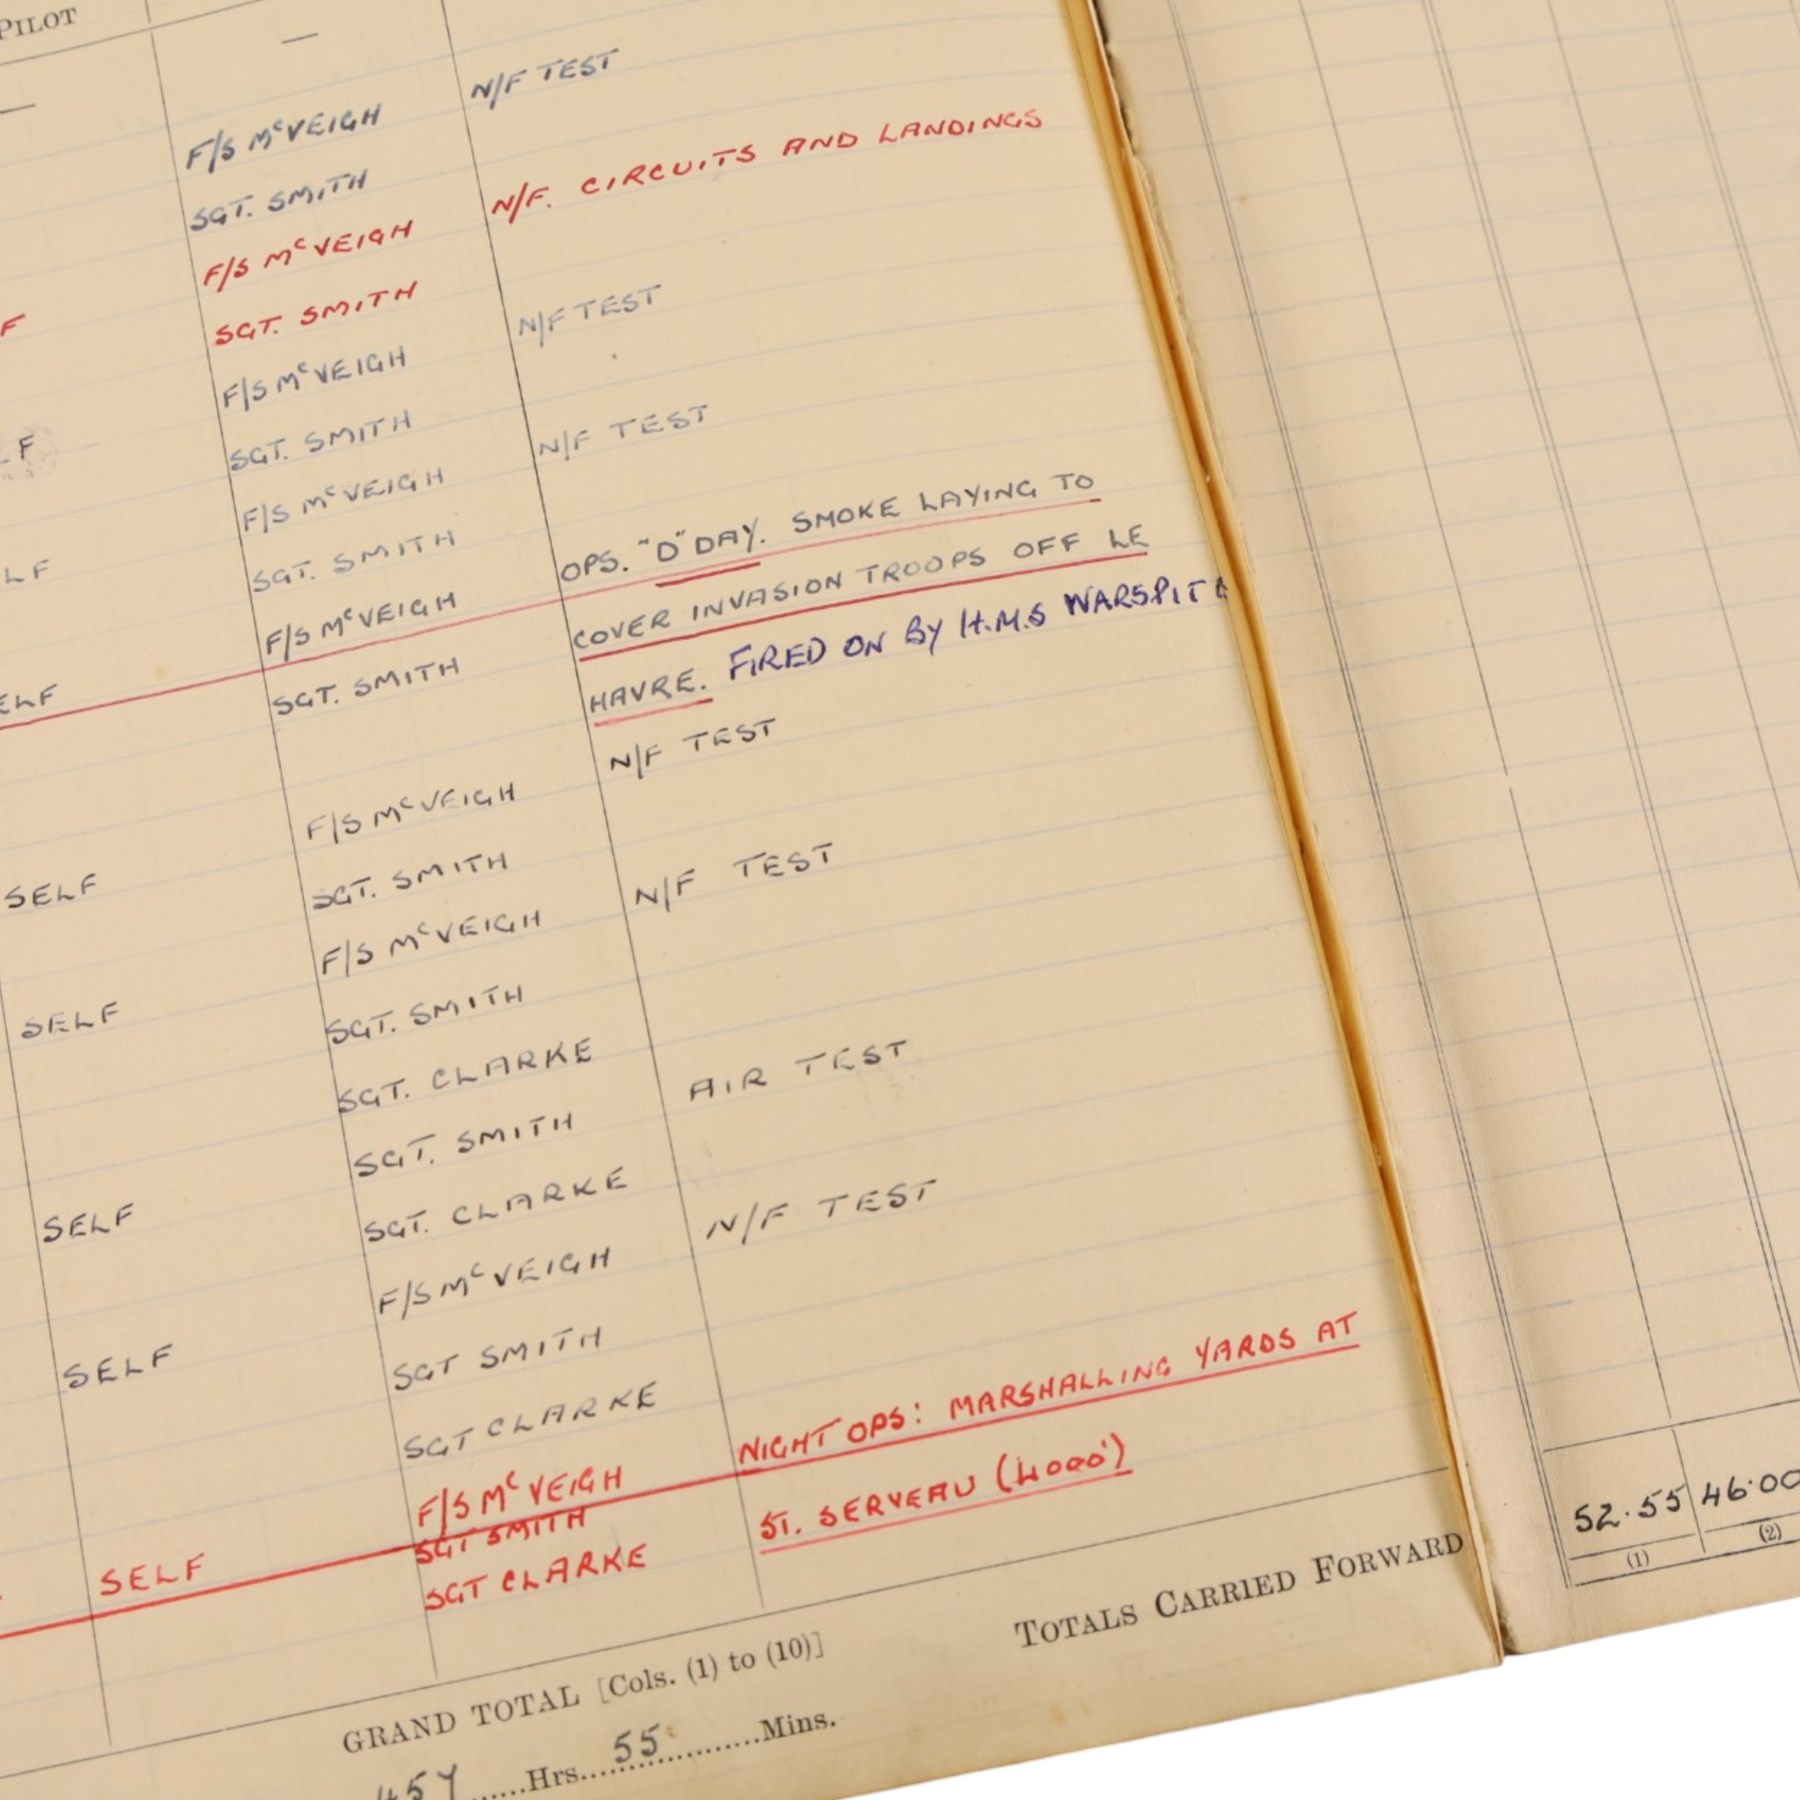 PILOT
—
—
N/F TEST
F/S McVEIGH
SGT. SMITH
N/F. CIRCUITS AND LANDINGS
F/S McVEIGH
F
SGT. SMITH
N/F TEST
F/S McVEIGH
LF
SGT. SMITH
N/F TEST
F/S McVEIGH
LF
SGT. SMITH
OPS. "D" DAY. SMOKE LAYING TO
F/S McVEIGH
COVER INVASION TROOPS OFF LE
ELF
SGT. SMITH
HAVRE. FIRED ON BY H.M.S WARSPITE
N/F TEST
F/S McVEIGH
SELF
SGT. SMITH
N/F TEST
F/S McVEIGH
SELF
SGT. SMITH
SGT. CLARKE
AIR TEST
SGT. SMITH
SELF
SGT. CLARKE
N/F TEST
F/S McVEIGH
SELF
SGT SMITH
SGT CLARKE
NIGHT OPS: MARSHALLING YARDS AT
F/S McVEIGH
ST. SERVEAU (4000')
SGT SMITH
SELF
SGT CLARKE
52.55 46.00
(1) (2)
TOTALS CARRIED FORWARD
GRAND TOTAL [Cols. (1) to (10)]
457 ......Hrs. 55 ......Mins.